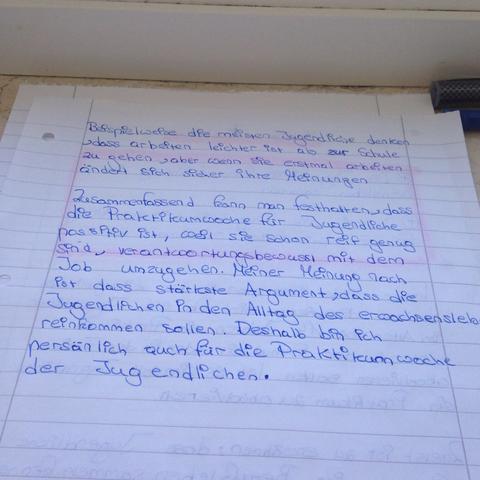 Beispielweise die meisten Jugendliche denken
,dass arbeiten leichter ist als zur Schule
zu gehen, aber wenn sie erstmal arbeiten
ändert sich sicher ihre Meinungen
Zusammenfassend kann man festhalten, dass
die Praktikumwoche für Jugendliche
passitiv ist, weil sie schon reif genug
sind, verantwortungsbewusst mit dem
Job umzugehen. Meiner Meinung nach
ist dass stärkste Argument, dass die
Jugendlichen in den Alltag des erwachsensleb
reinkommen sollen. Deshalb bin ich
persänlich auch für die Praktikumwoche
der Jugendlichen.